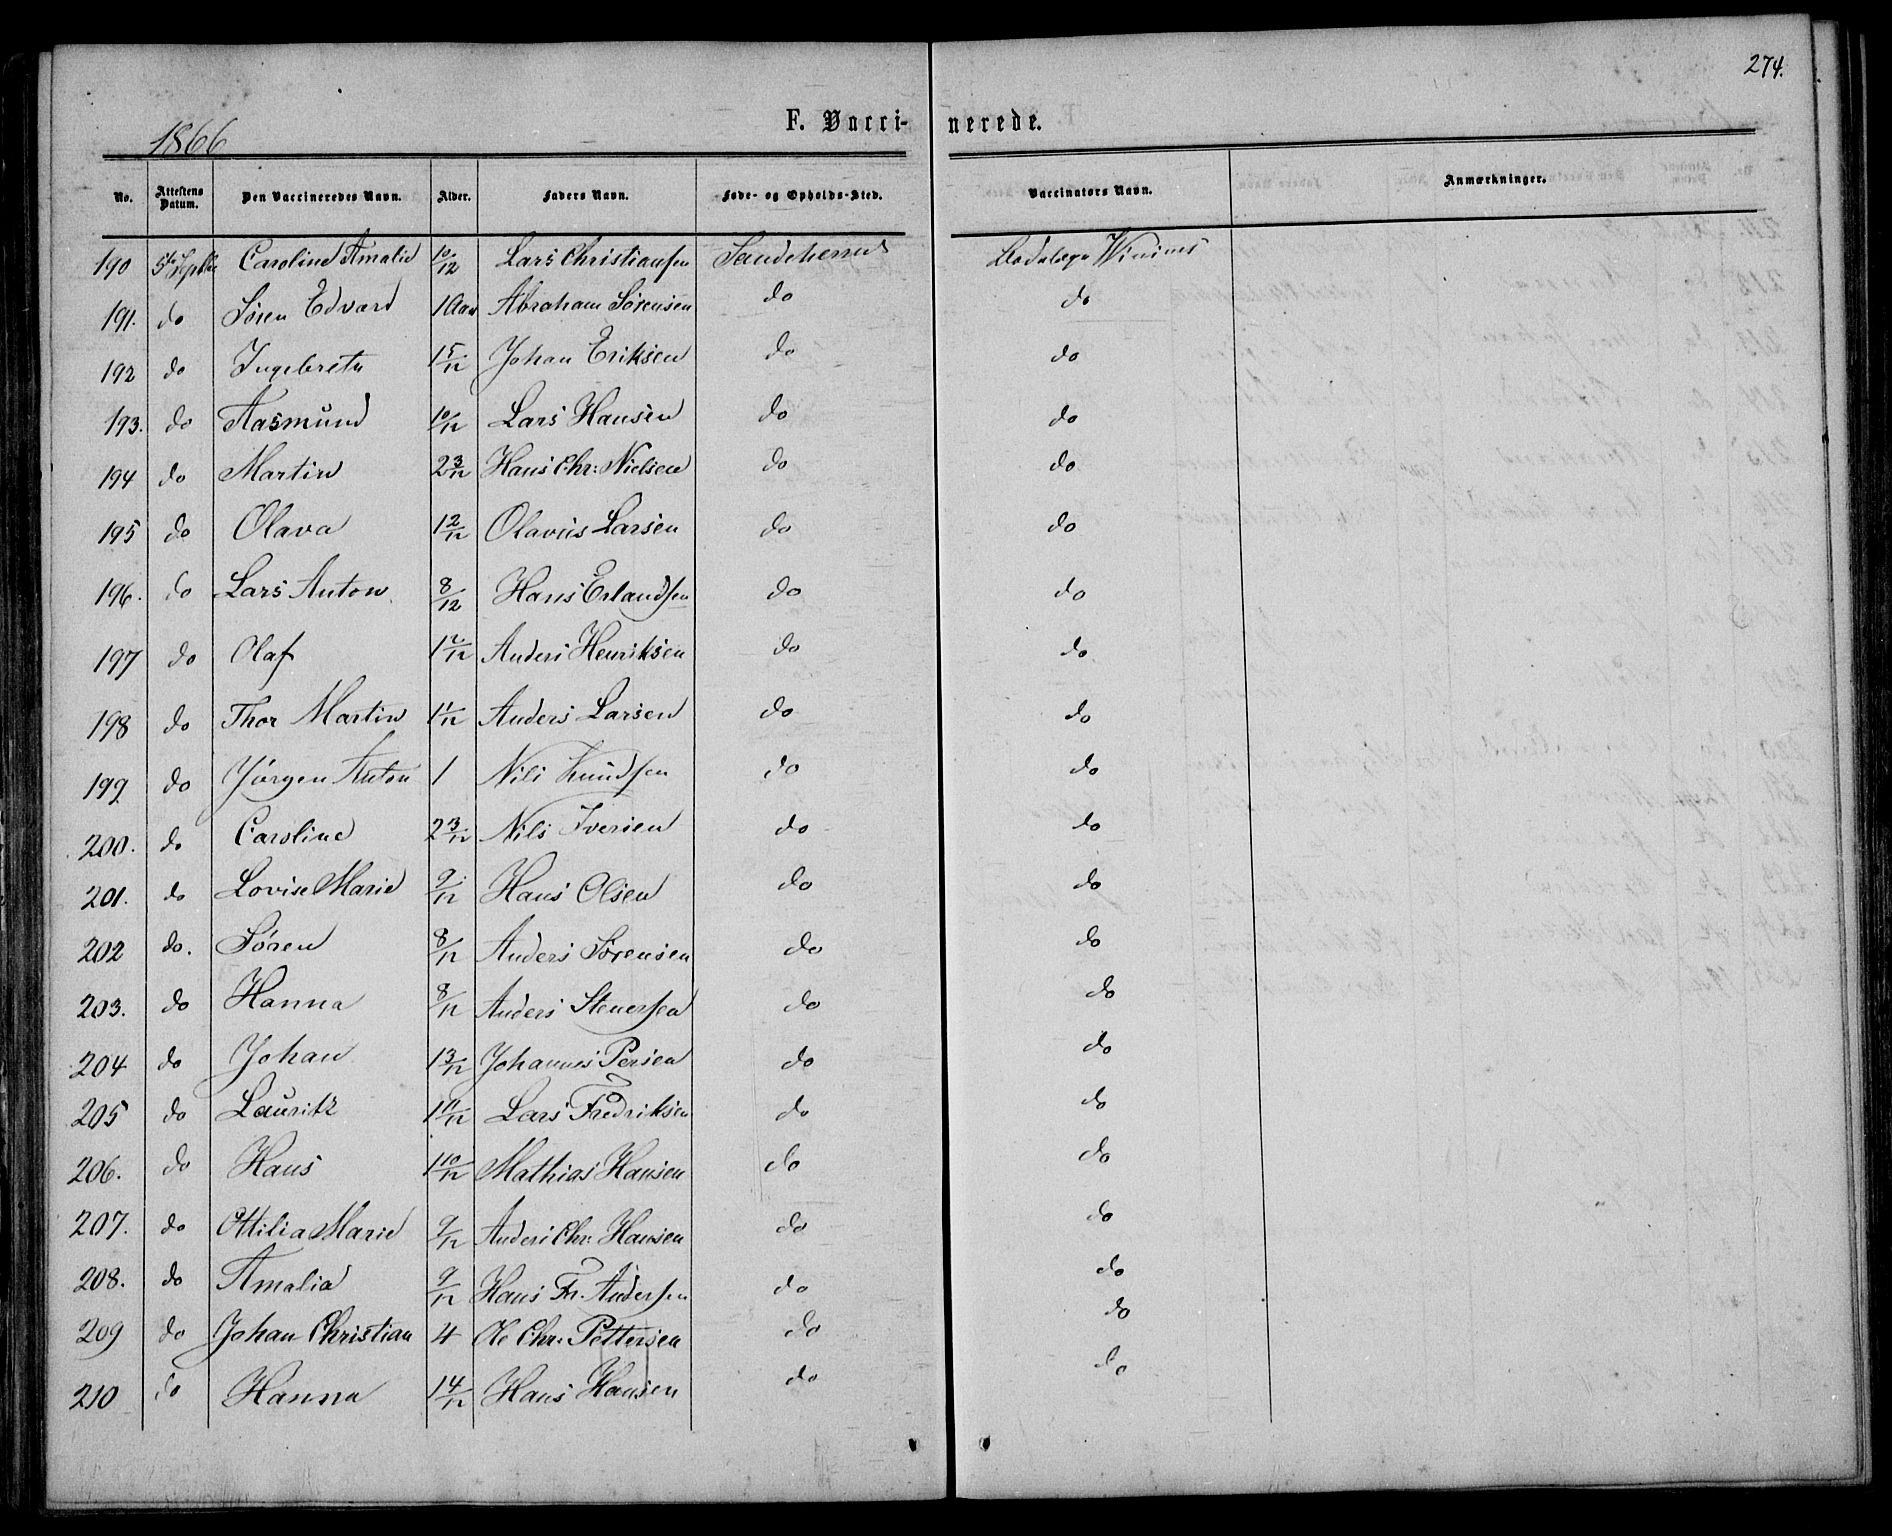 274.
1866 F. Vacci- nerede.
No. Attestens Datum. Den Vaccineredes Navn. Alder. Faders Navn. Føde- og Opholds-Sted. Vaccinators Navn. Anmærkninger.
190 5te Septbr Caroline Amalie 10/12 Lars Christiansen Sandeherred
191. do Søren Edvard 1 Aar Abraham Sørensen do do
192 do Ingebreta 1 5/12 Johan Eriksen do do
193. do Aasmund 10/12 Lars Hansen do do
194 do Martin 2 3/12 Hans Chr: Nielsen do do
195 do Olava 1 2/12 Olavus Larsen do do
196. do Lars Anton 8/12 Hans Erlandsen do do
197 do Olaf 1 2/12 Anders Henriksen do do
198 do Thor Martin 1 1/12 Anders Larsen do do
199 do Jörgen Anton 1 Nils Knudsen do do
200. do Caroline 2 3/12 Nils Iversen do do
201. do Lovise Marie 9/12 Hans Olsen do do
202 do. Søren 8/12 Anders Sørensen do do
203. do Hanna 8/12 Anders Stenersen do do
204 do Johan 1 3/12 Johannes Persen do do
205 do Lauritz 1 11/12 Lars Fredriksen do do
206. do Hans 1 10/12 Mathias Hansen do do
207. do Ottilia Marie 9/12 Anders Chr: Hansen do do
208. do Amalia 9/12 Hans Fr. Andersen do do
209 do Johan Christian 4 Ole Chr: Pettersen do do
210 do Hanna 1 4/12 Hans Hansen do do